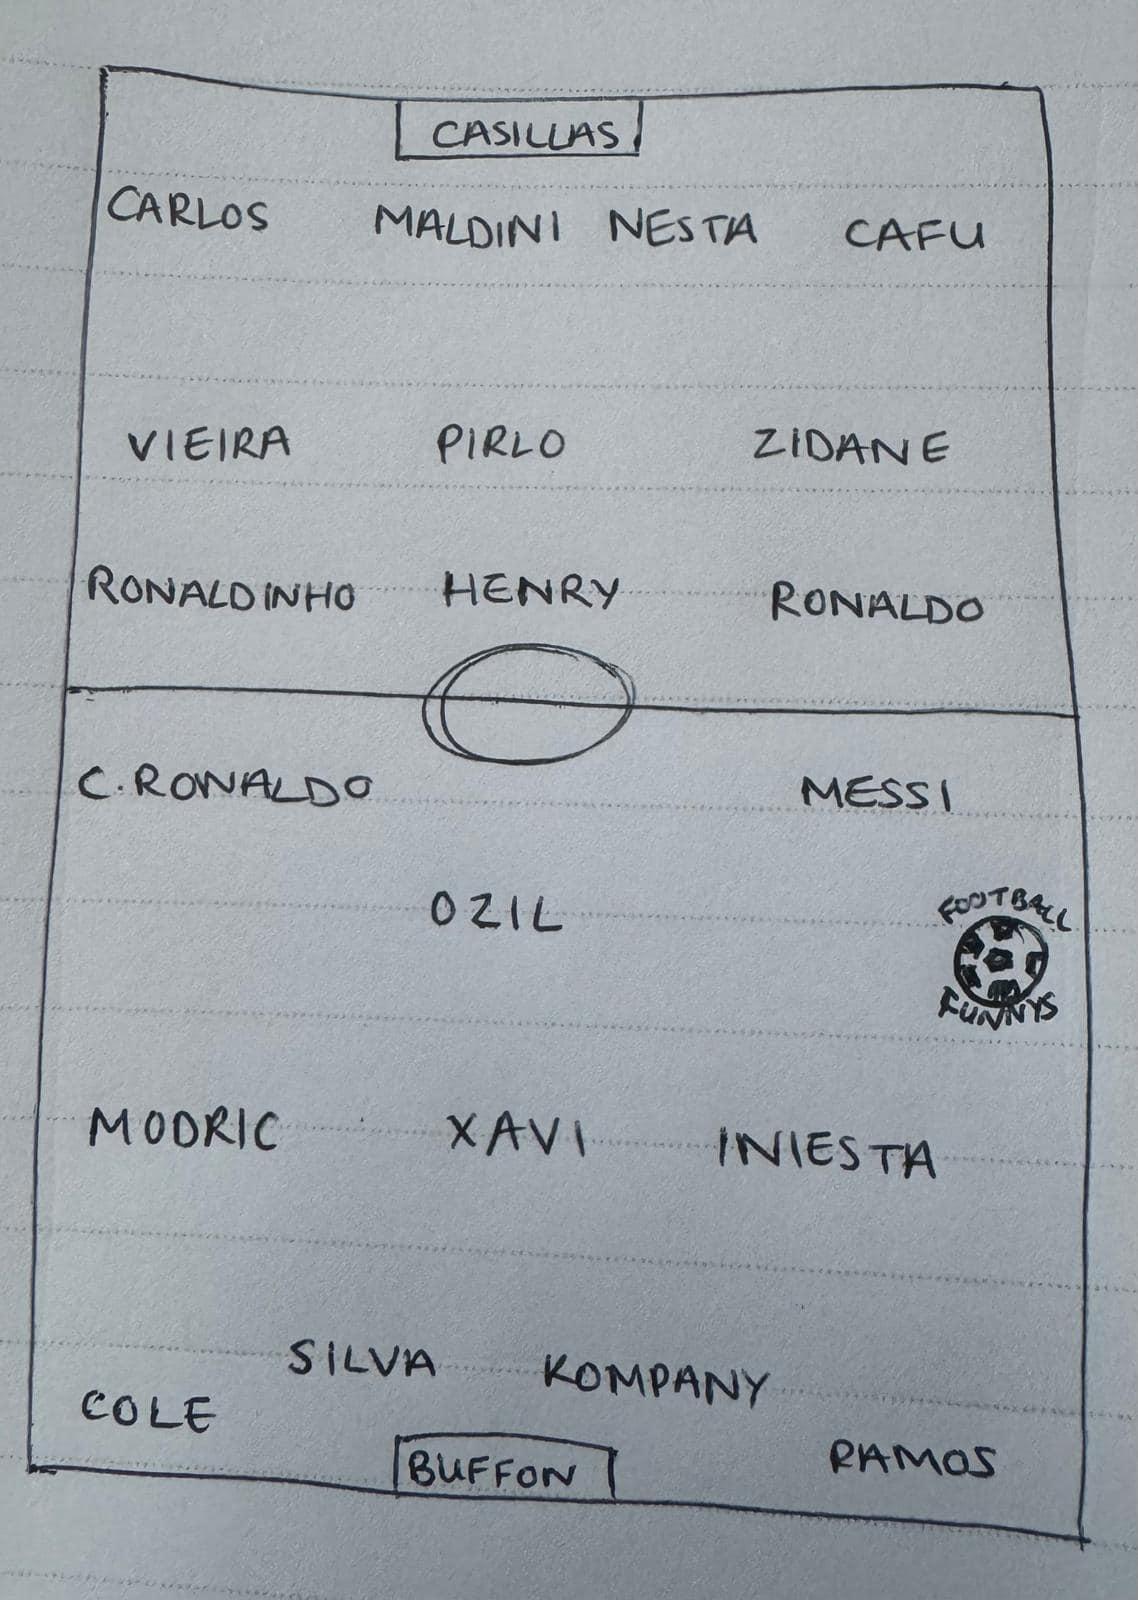 CASILLAS
CARLOS MALDINI NESTA CAFU
VIEIRA PIRLO ZIDANE
RONALDINHO HENRY RONALDO
C. RONALDO MESSI
OZIL
FOOTBALL
FUNNYS
MODRIC XAVI INIESTA
SILVA KOMPANY
COLE
RAMOS
BUFFON